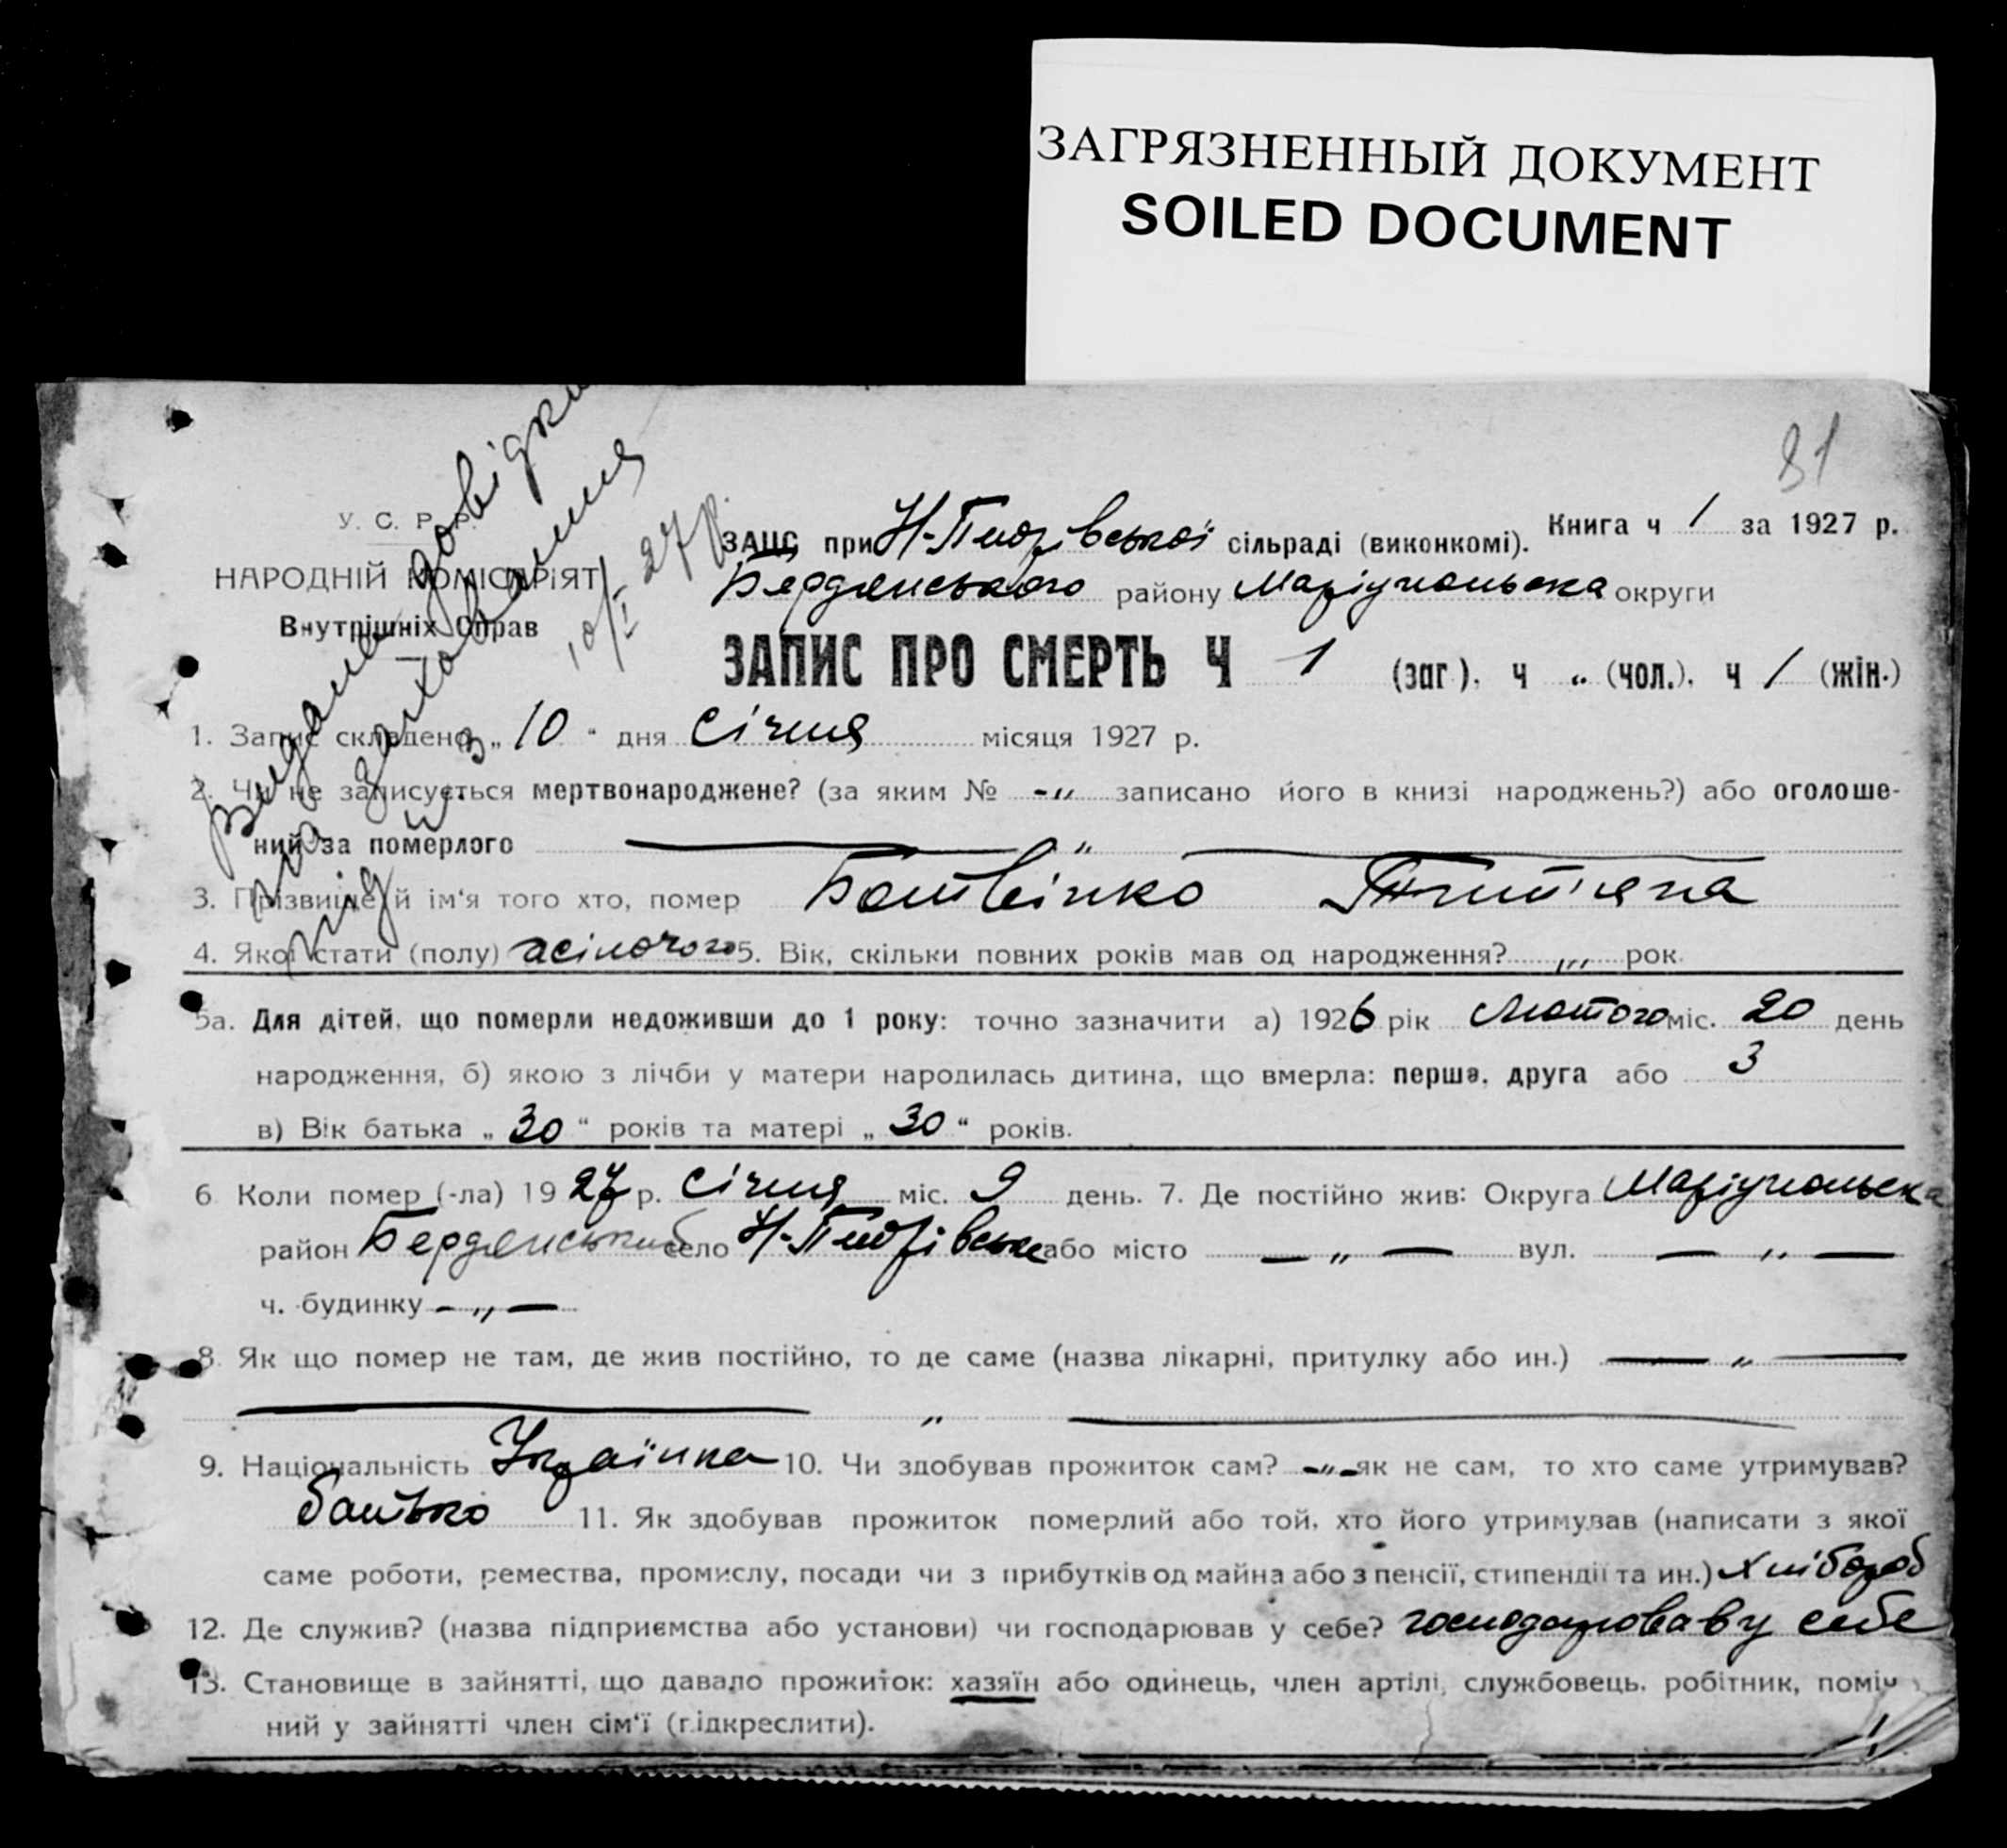 ЗАГРЯЗНЕННЫЙ ДОКУМЕНТ
SOILED DOCUMENT
81
У. С. Р. Р.
НАРОДНІЙ КОМІСАРІЯТ
Внутрішніх Справ
Видана довідка
на заховання
під
10/I 27 р.
ЗАЦС при сільраді (виконкомі). Книга ч 1 за 1927 р.
Бердянського району Маріупольська округи
ЗАПИС ПРО СМЕРТЬ Ч 1 (заг.), ч „ (чол.), ч 1 (жін.)
1. Запис складено „ 10 “ дня Січня місяця 1927 р.
2. Чи не записується мертвонароджене? (за яким № -„ записано його в книзі народжень?) або оголоше-
ний за померлого — „ —
3. Прізвище й ім‘я того хто, помер Ботвінко
4. Якої стати (полу) жіночого 5. Вік, скільки повних років мав од народження? „ рок.
5а. Для дітей, що померли недоживши до 1 року: точно зазначити а) 1926 рік Лютого міс. 20 день
народження, б) якою з лічби у матери народилась дитина, що вмерла: перша, друга або 3
в) Вік батька „ 30 “ років та матері „ 30 “ років.
6 Коли помер (-ла) 1927 р. Січня міс. 9 день. 7. Де постійно жив: Округа Маріупольська
район Бердянський село або місто — „ — вул. — „ —
ч. будинку - „ —
8. Як що помер не там, де жив постійно, то де саме (назва лікарні, притулку або ин.) — „ —
— „ —
9. Національність Українка 10. Чи здобував прожиток сам? -„- як не сам, то хто саме утримував?
батько 11. Як здобував прожиток померлий або той, хто його утримував (написати з якої
саме роботи, ремества, промислу, посади чи з прибутків од майна або з пенсії, стипендії та ин.) Хлібороб
12. Де служив? (назва підприємства або установи) чи господарював у себе? господарював у себе
13. Становище в зайнятті, що давало прожиток: хазяїн або одинець, член артілі, службовець, робітник, поміч
ний у зайнятті член сім‘ї (підкреслити).